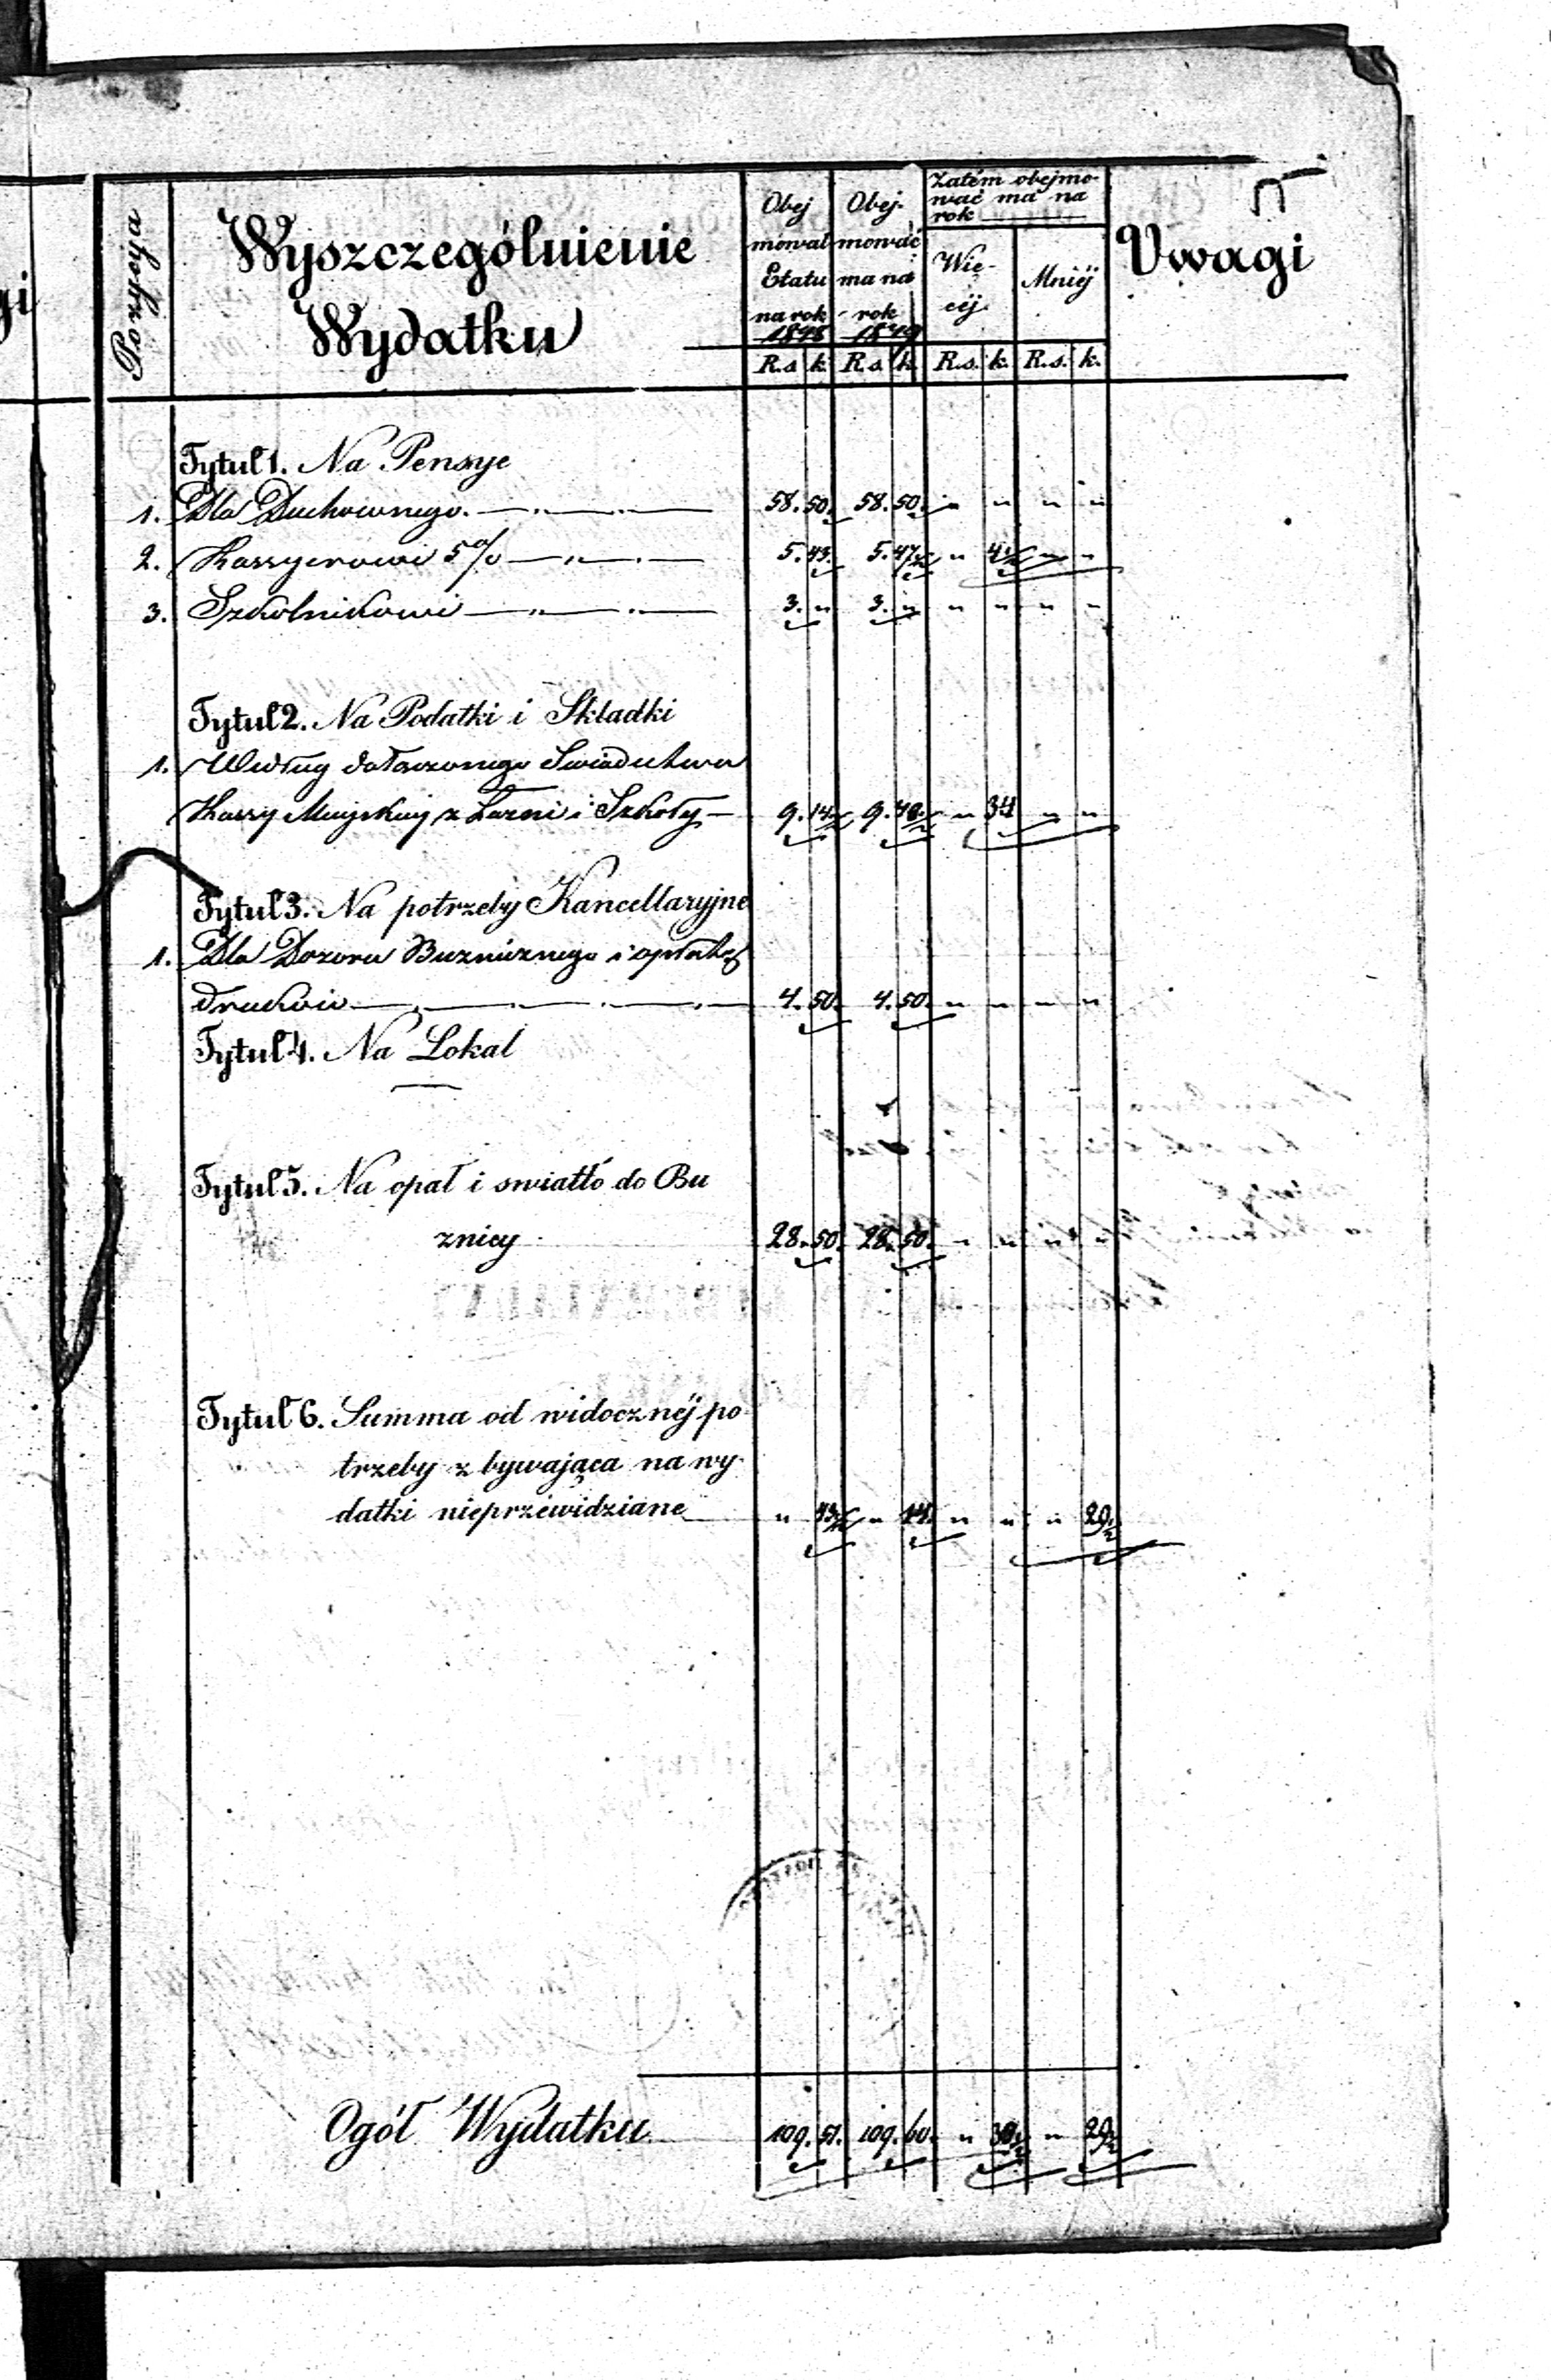 Pozycya
Wyszczególnienie
Wydatku
Obej
mował
Etatu
na rok
1848
Obej-
mować
ma na
rok
1849
Zatém obejmo-
wać ma na
rok
Wię-
céj
Mniéj
Uwagi
R.s. k. R.s. k. R.s. k. R.s. k.
Tytuł 1. Na Pensye
1. Dla Duchownego. 58. 50. 58. 50. " " " "
2. Kassyerowi 5% 5. 43. 5. 47½ " 4½ " "
3. Szkolnikowi 3. " 3. " " " " "
Tytuł 2. Na Podatki i Składki
1. Według dołączonego Swiadectwa
Kassy Mieyskiey z Łazni i Szkoły 9. 14½ 9. 48½ " 34 " "
Tytuł 3. Na potrzeby Kancellaryjne
1. Dla Dozoru Buzniznego i opłatę
druków 4. 50. 4. 50. " " " "
Tytuł 4. Na Lokal
Tytuł 5. Na opał i swiatło do Bu
znicy 28. 50. 28. 50. " " " "
Tytuł 6. Summa od widocznéj po
trzeby zbywająca na wy-
datki nieprzewidziane " 43½ " 14. " " " 29½
Ogół Wydatku 109. 51. 109. 60. " 38½ " 29½